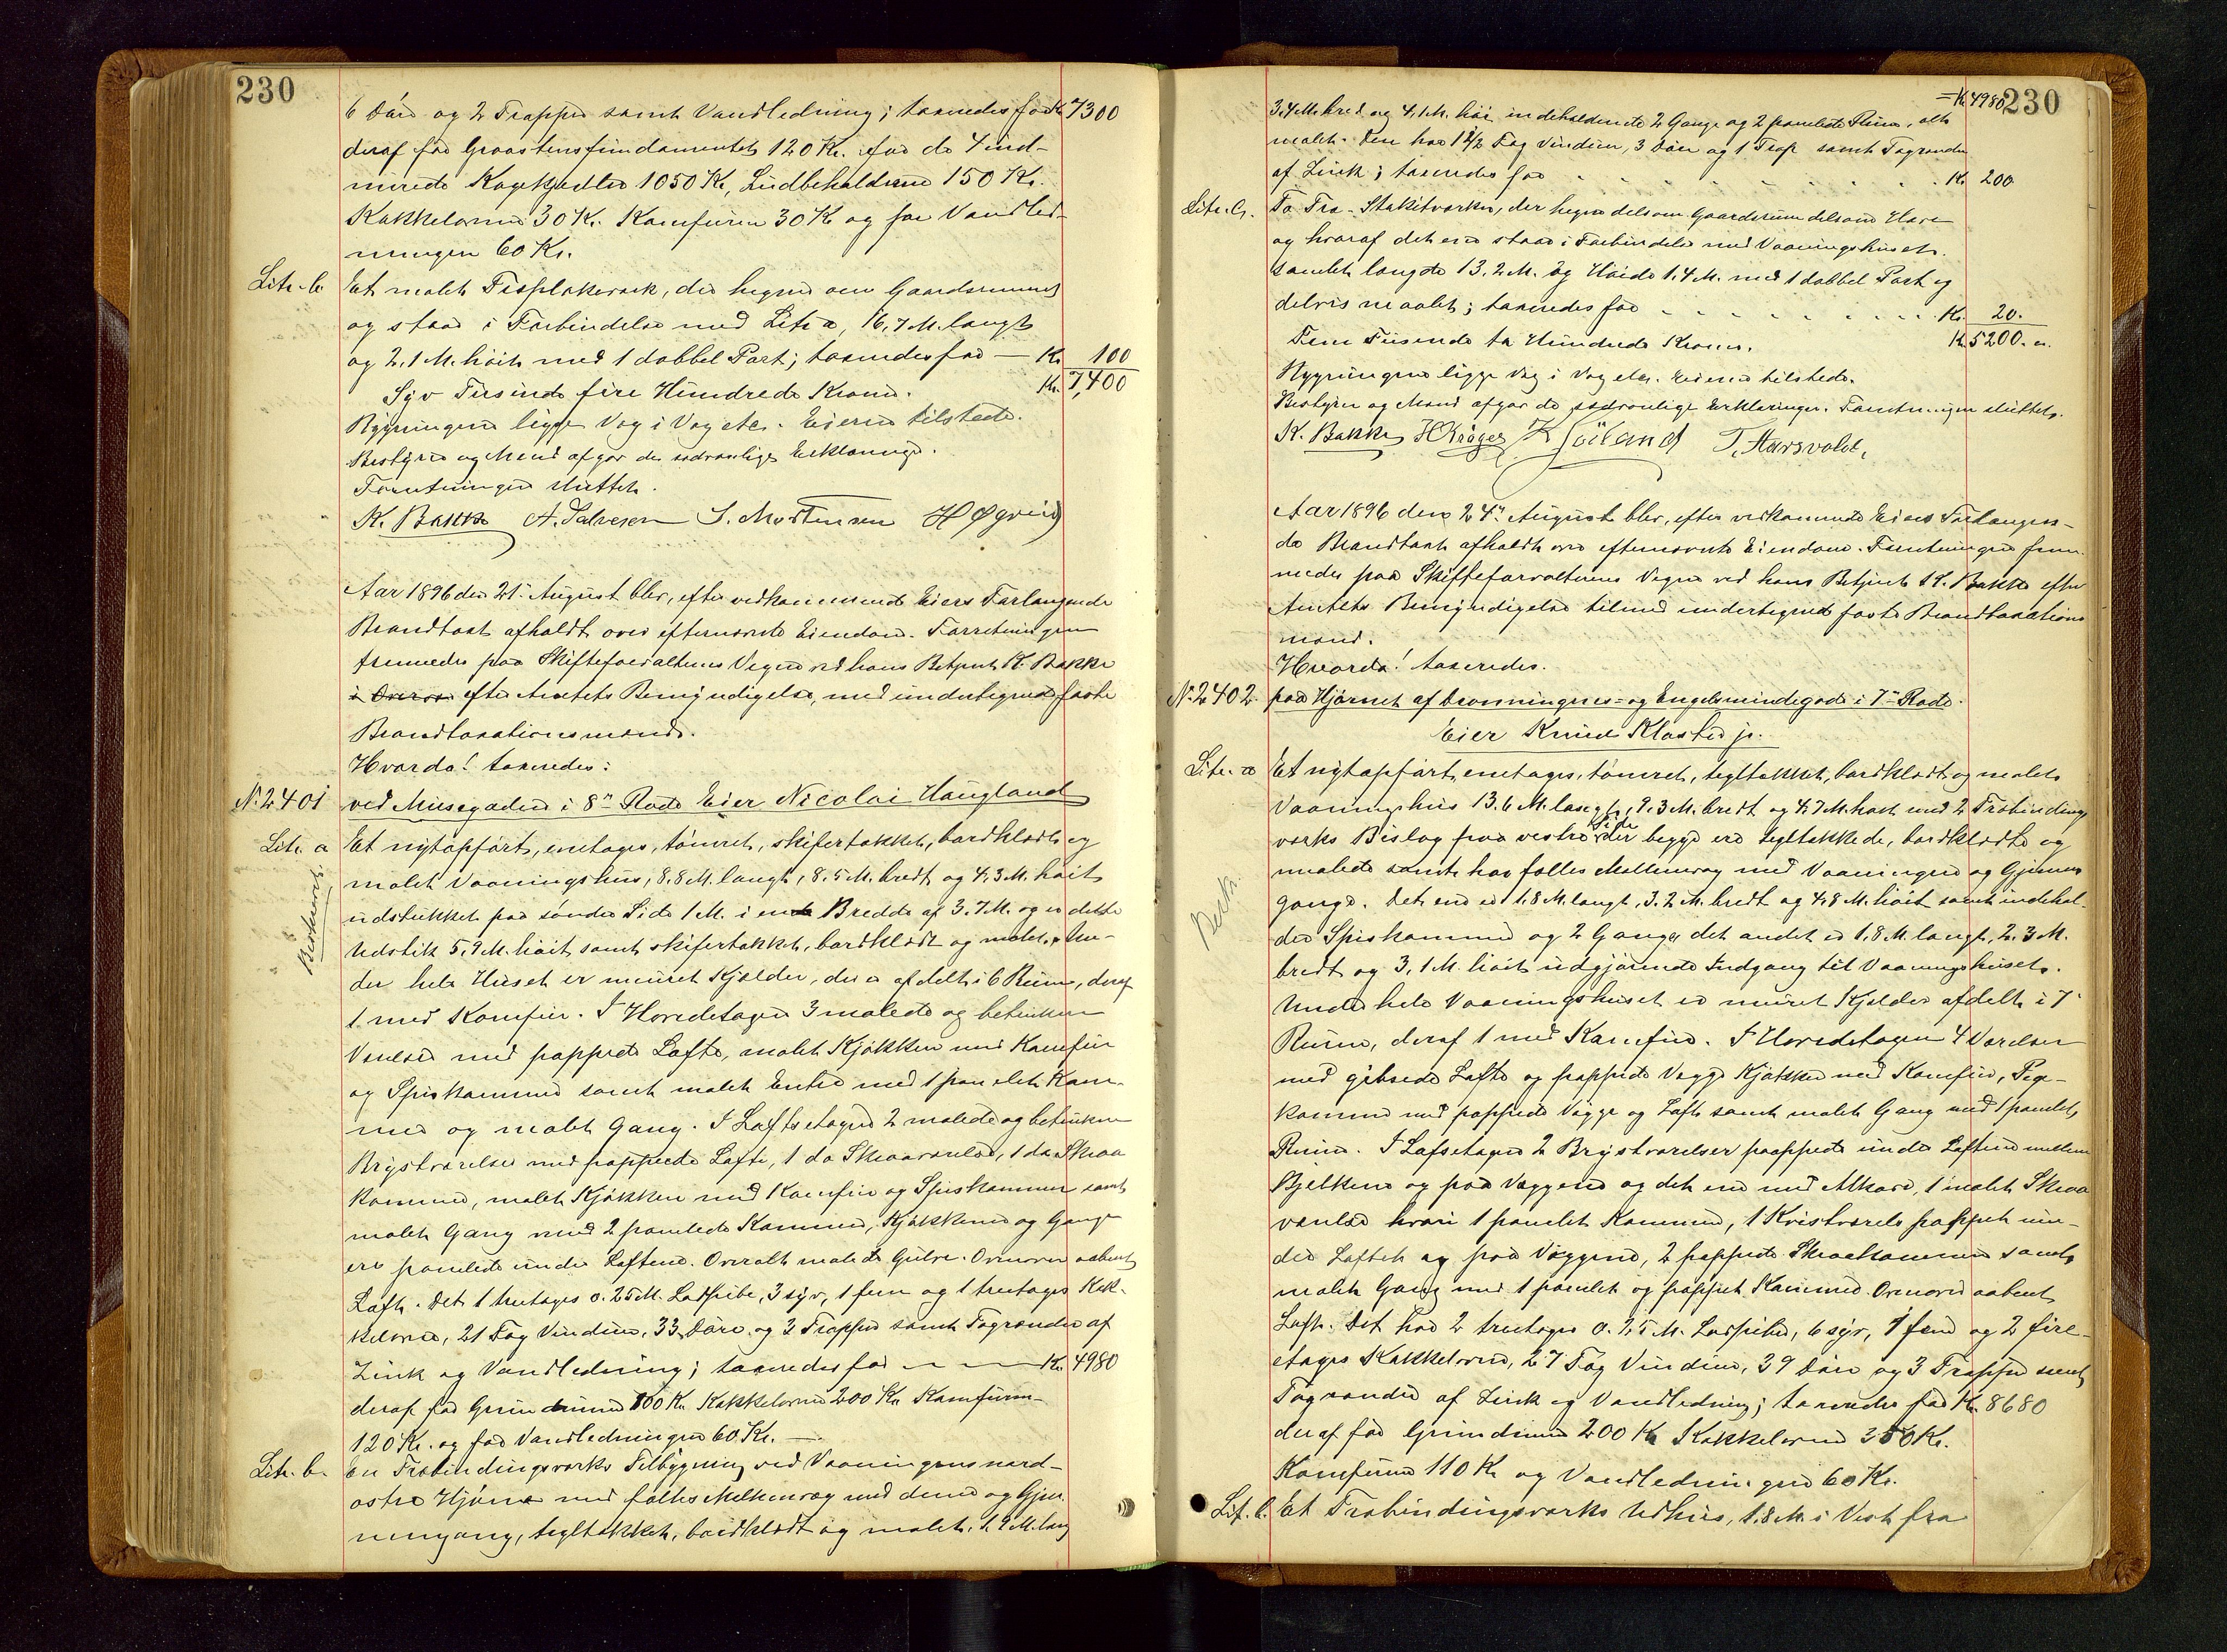 230
6 Döre og 2 Trapper samt Vandledning; taxeredes for Kr 7300
deraf for Graastensfundamentet 120 Kr. for de 4 ind-
murede Kogekjedler 1050 Kr, Ludbeholderne 150 Kr.
Kakkelovnen 30 Kr. Komfuren 30 Kr og for Vandled-
ningen 60 Kr.
Litr. b Et malet Træplankeværk, der hegner om Gaardsrummet
og staar i Forbindelse med Litr a, 16,7 M. langt
og 2,1 M. höit med 1 dobbel Port; taxeredes for — Kr 100
Syv Tusinde fire Hundrede Kroner. Kr. 7,400
Bygningerne ligge Væg i Væg etc. Eieren tilstede.
Bestyrer og Mænd afgav de sædvanlige Erklæringer.
Forretningen sluttet.
K. Bakke A. Salvesen S. Mortensen H Øgreid
Aar 1896 den 21. August blev, efter vedkommende Eiers Forlangende
Brandtaxt afholdt over efternævnte Eiendom. Forretningen
fremmedes paa Skifteforvalterens Vegne ved hans Betjent K. Bakke
efter Amtets Bemyndigelse, med undertegnede faste
Brandtaxationsmænd.
Hvorda! taxeredes:
No. 2401 ved Musegaden i 8de Rode Eier Nicolai Haugland
Litr. a Et nytopfört, enetages, tömret, skifertækket, bordklædt og
malet Vaaningshus, 8,8 M. langt, 8,5 M. bredt og 4,3 M. höit
udstukket paa söndre Side 1 M. i en Bredde af 3,7 M. og er dette
Udstik 5,9 M. höit samt skifertækket, bordklædt og malet. Un-
der hele Huset er muret Kjelder, der er afdelt i 6 Rum, deraf
1 med Komfur. I Hovedetagen 3 malede og betrukne
Værelser med pappede Lofte, malet Kjökken med Komfur
og Spiskammer samt malet Entre med 1 panelet Kam-
mer og malet Gang. I Loftsetagen 2 malede og betrukne
Brystværelser med pappede Lofte, 1 do Skraaværelse, 1 do Skraa
kammer, malet Kjökken med Komfur og Spiskammer samt
malet Gang med 2 panelede Kammer, Kjökkenet og Gange
ere panelede under Loftene. Overalt malede Gulve. Ovenover aabent
Loft. Det 1 treetages o. 25 M. Ladpibe, 3 syv, 1 fem og 1 treetages Kak-
kelovne, 21 Fag Vinduer, 33 Döre og 3 Trapper samt Tagrender af
Zink og Vandledning; taxeredes for — — Kr 4980
deraf for Grundmuren 100 Kr. Kakkelovne 200 Kr Komfuren
120 Kr. og for Vandledningen 60 Kr. —
Litr. b. En Træbindingsværks Tilbygning ved Vaaningens nord-
östre Hjörne med fælles Mellemvæg med denne og Gjen-
nemgang, tegltækket, bordklædt og malet, 1,9 M. lang
230
= Kr 4980
3,4 M. bred og 4,1 M. höi indeholdende 2 Gange og 2 panelede Rum, alt
malet. Den har 1 1/2 Fag Vinduer, 3 Döre og 1 Trap samt Tagrender
af Zink; taxeredes for Kr. 200
Litr. c. To Træ-Stakitværker, der hegner delsom Gaardsrum delsom Have
og hvoraf det ene staar i Forbindelse med Vaaningshuset.
samlet længde 13,2 M. og Höide 1,4 M. med 1 dobbel Port og
delvis malet; taxeredes for Kr. 20.
Fem Tusinde to Hundrede Kroner. Kr 5200.
Bygningerne ligge Væg i Væg etc. Eieren tilstede.
Bestyrer og Mænd afgav de sædvanlige Erklæringer. Forretningen sluttet.
K. Bakke H Kröger T. Aarsvold,
Aar 1896 den 24de August blev, efter vedkommende Eiers Forlangen-
de Brandtaxt afholdt over efternævnte Eiendom. Forretningen frem-
medes paa Skifteforvalterens Vegne ved hans Betjent K. Bakke efter
Amtets Bemyndigelse tilmed undertegnede faste Brandtaxations
mænd.
Hvorda! taxeredes.
No. 2402. paa Hjörnet af Dronningnes- og Engelsmindegade i 7de Rode.
Eier Knud Klosted jr.
Litr. a Et nytopfört, enetages, tömret, tegltækket, bordklædt og malet
Vaaningshus 13,6 M. langt, 9,3 M. bredt og 4,7 M. höit med 2 Træbindings
værks Bislag paa vestre Side der begge ere tegltækkede, bordklædte og
malede samt har fælles Mellemvæg med Vaaningen og Gjennem
gange. Det ene er 1,8 M. langt, 3,2 M. bredt og 4,8 M. höit samt indehol-
der Spiskammer og 2 Gange, det andet er 1,8 M. langt, 2,3 M.
bredt og 3,1 M. höit udgjörende Indgang til Vaaningshuset.
Under hele Vaaningshuset er muret Kjelder afdelt i 7
Rum, deraf 1 med Komfur. I Hovedetagen 4 Værelser
med gibsede Lofte og pappede Vægge Kjökken med Komfur, Pige-
kammer med pappede Vægge og Loft samt malet Gang med 1 panelet
Rum. I Loftsetagen 2 Brystværelser pappede under Loftene mellem
Bjelkene og paa Væggene og det ene med Alkove, 1 malet Skraa
værelse hvori 1 panelet Kammer, 1 Kvistværelse pappet un-
der Loftet og paa Væggene, 2 pappede Skraakammer samt
malet Gang med 1 panelet og pappet Kammer. Ovenover aabent
Loft. Det har 2 treetages o. 7,5 M. Ladpiber, 6 syv, 1 fem og 2 fire-
etages Kakkelovne, 27 Fag Vinduer, 39 Döre og 3 Trapper samt
Tagrender af Zink og Vandledning; taxeredes for Kr. 8680
deraf for Grundmuren 200 Kr Kakkelovne 350 Kr.
Komfurene 110 Kr og Vandledningen 60 Kr.
Lit. b. Et Træbindingsværks Udhus, 1,8 M. i Vest fra